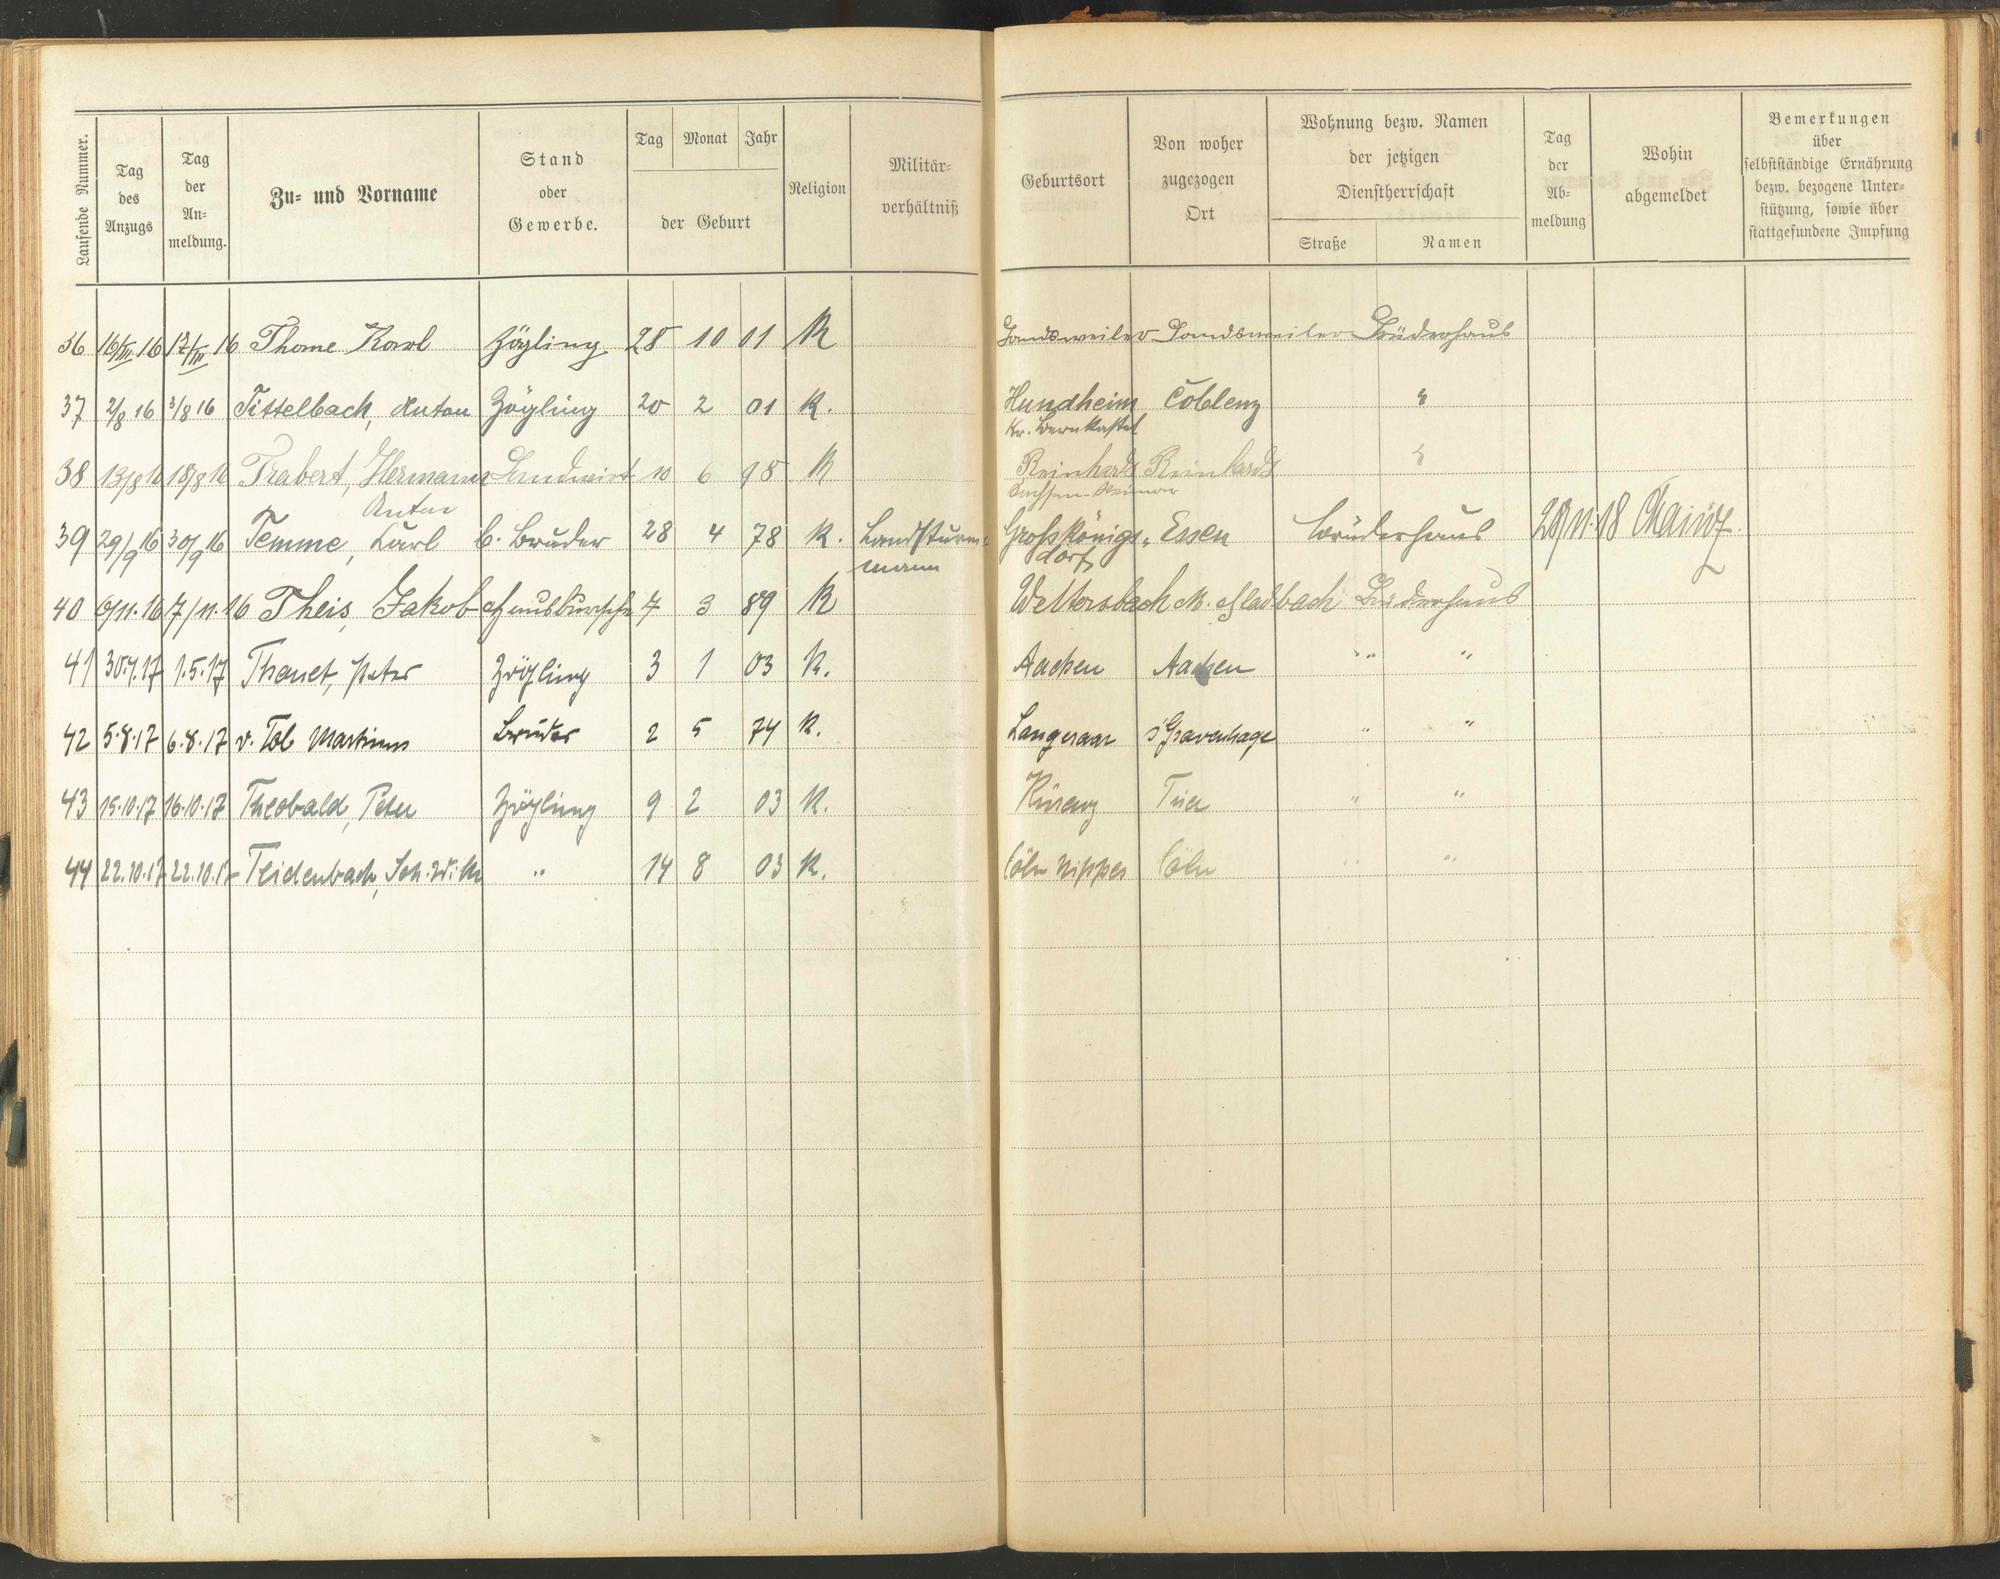 Laufende Nummer.
Tag des Anzugs
Tag der An-meldung.
Zu- und Vorname
Stand oder Gewerbe.
Tag Monat Jahr
der Geburt
Religion
Militär-verhältniß
Geburtsort
Von woher zugezogen Ort
Wohnung bezw. Namen der jetzigen Dienstherrschaft
Straße Namen
Tag der Ab-meldung
Wohin abgemeldet
Bemerkungen über selbstständige Ernährung bezw. bezogene Unter-stützung, sowie über stattgefundene Impfung
36 16/III 16 17/III 16 Thome Karl Zögling 28 10 01 K Landsweiler Landsweiler Brüderhaus
37 2/8 16 3/8 16 Tittelbach, Anton Zögling 20 2 01 K. Hundheim Coblenz "
Kr. Bernkastel
38 13/8 16 18/8 16 Trabert, Hermann Landwirt 10 6 98 K Reinhards Reinhards "
Anton Sachsen-Weimar
39 29/9 16 30/9 16 Temme, Carl b. Bruder 28 4 78 K. Landsturm- Großkönigs- Essen Brüderhaus 28/11.18 Mainz.
mann dorf
40 6/11.16 7/11.16 Theis, Jakob Hausbursche 7 3 89 K M.Gladbach Brüderhaus
41 30.4.17 1.5.17 Thanet, Peter Zögling 3 1 03 K. Aachen Aachen " "
42 5.8.17 6.8.17 v. Tol Martinus Bruder 2 5 74 K. Langeraar s'Gravenhage " "
43 15.10.17 16.10.17 Theobald, Peter Zögling 9 2 03 K. Kürenz Trier " "
44 22.10.17 22.10.17 Teidenbach, Joh. Wilh " 14 8 03 K. Cöln Nippes Cöln " "